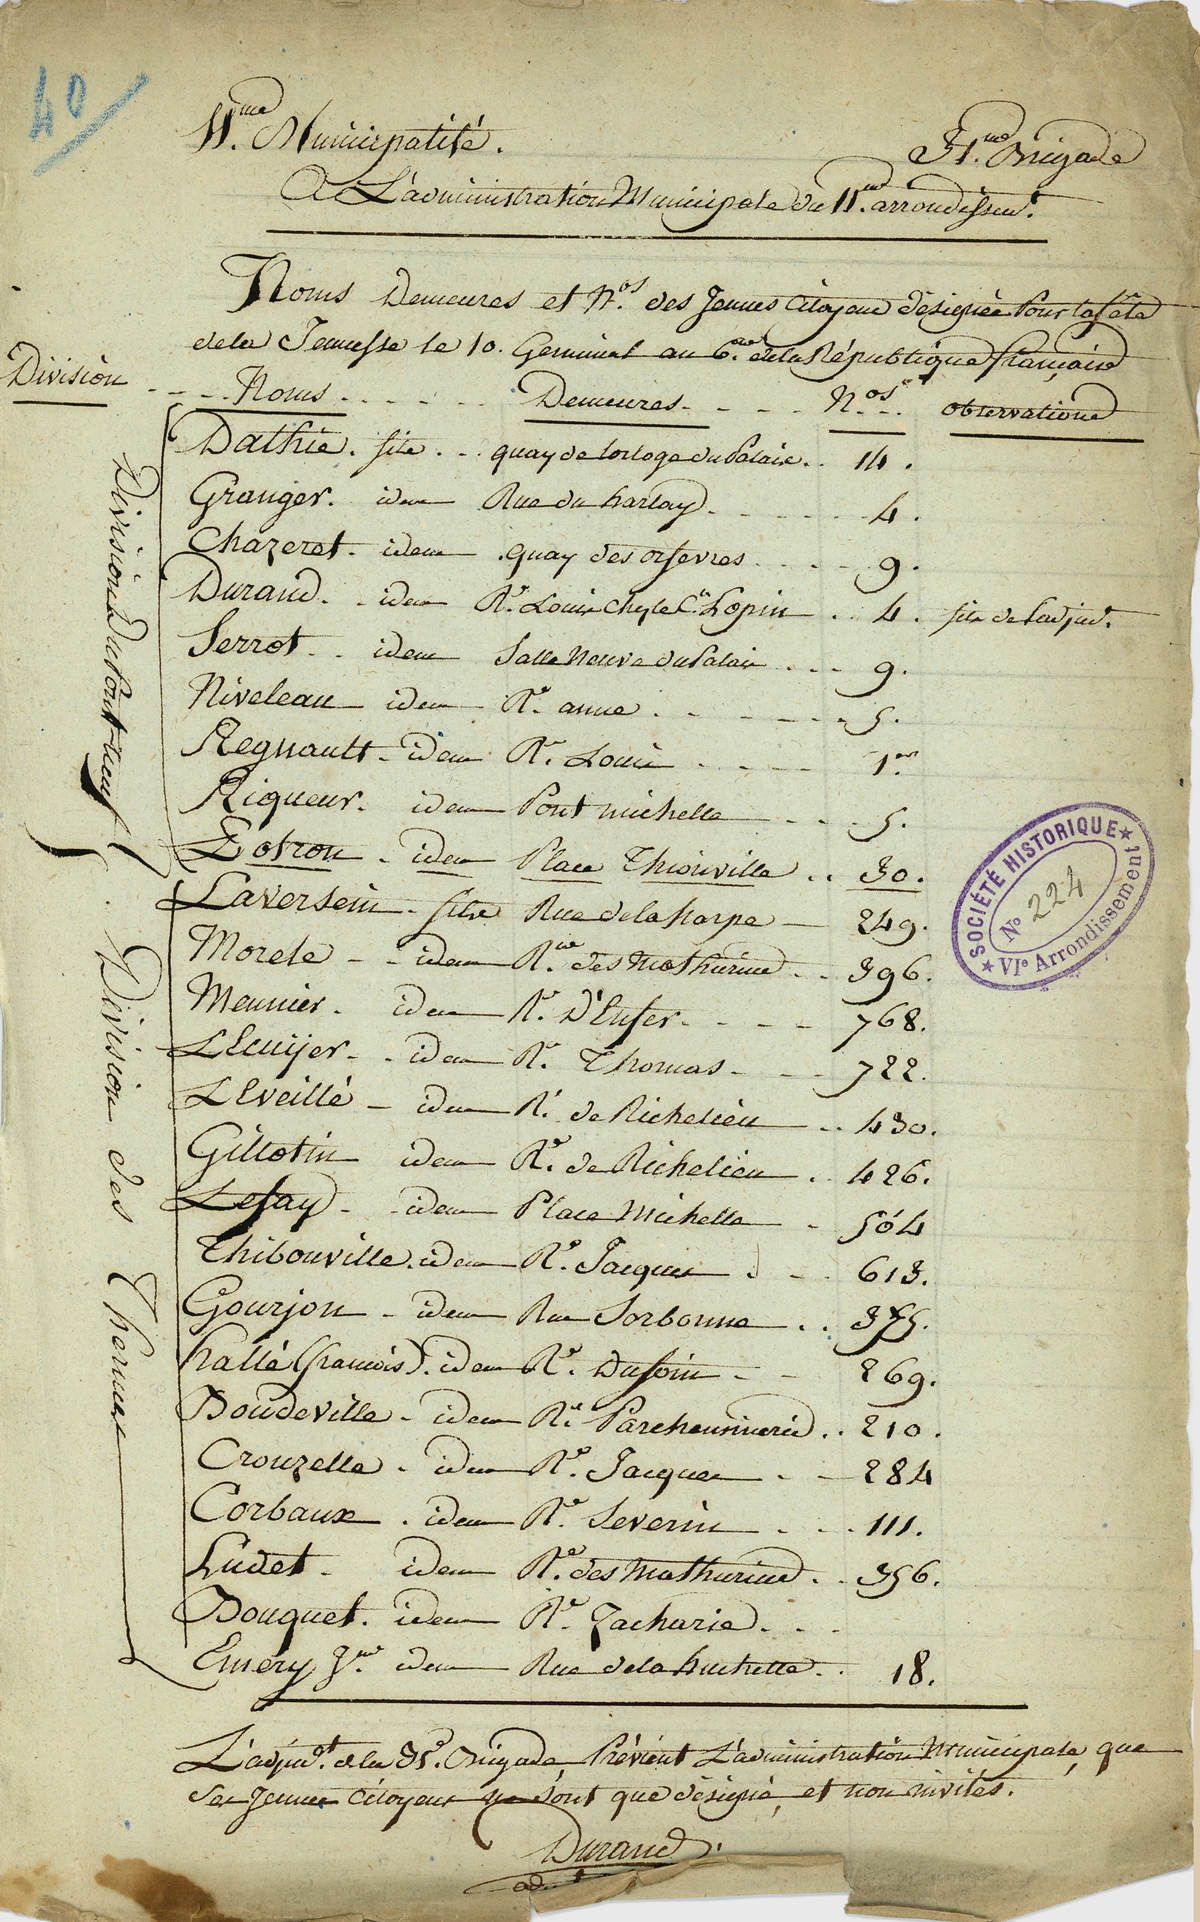 40
11.me Municipalité. 31.me Brigade
A L'administration Municipale du 11.me arrondissem.t
Noms Demeures et N.os des Jeunes Citoyens désignés Pour la fête
de la Jeunesse le 10. Germinal an 6.me de la République française
Division Noms Demeures N.os observations
Division Du Pont-neuf
Dathie. fils quay de lorloge du Palais 14.
Granger. idem Rue du harlay 4.
Chazeret. idem quay des orfevres 9.
Durand. idem R.e Louis chez le C.en Lopin 4. fils de l'adjud.t
Serrot idem Salle Neuve du Palais 9.
Niveleau idem R.e anne 5.
Regnault idem R.e Louis 1.er
Riqueur. idem Pont michelle 5.
Lotron idem Place Thionville 30.
Division des Thermes
Laversein fils Rue de la harpe 249.
Morele idem R.ue des Mathurins 396.
Meunier. idem R.e D'Enfer 768.
LEcuijer idem R.e Thomas 722.
LEveillé idem R.e de Richelieu 430.
Gillotin idem R.e de Richelieu 426.
Lefay idem Place Michelle 504
Thibouville. idem R.e Jacques 613.
Gourjon idem Rue Sorbonne 375.
hallé (francois). idem R.e Dufoin 269.
Doudeville idem R.e Parcheminerie 210.
Crouzelle idem R.e Jacques 284
Corbaux idem R.e Severin 111.
Ludet idem R.e des Mathurins 356.
Bouquet. idem R.e Zacharie.
Emery J.ne idem Rue de la huchette. 18.
L'adjud.t de la 31.e Brigade, Prévient L'administration Municipale, que
Ses Jeunes Citoyens ne sont que désigné, et non invités.
Durand
ad.t
SOCIÉTÉ HISTORIQUE
No 224
VIe Arrondissement